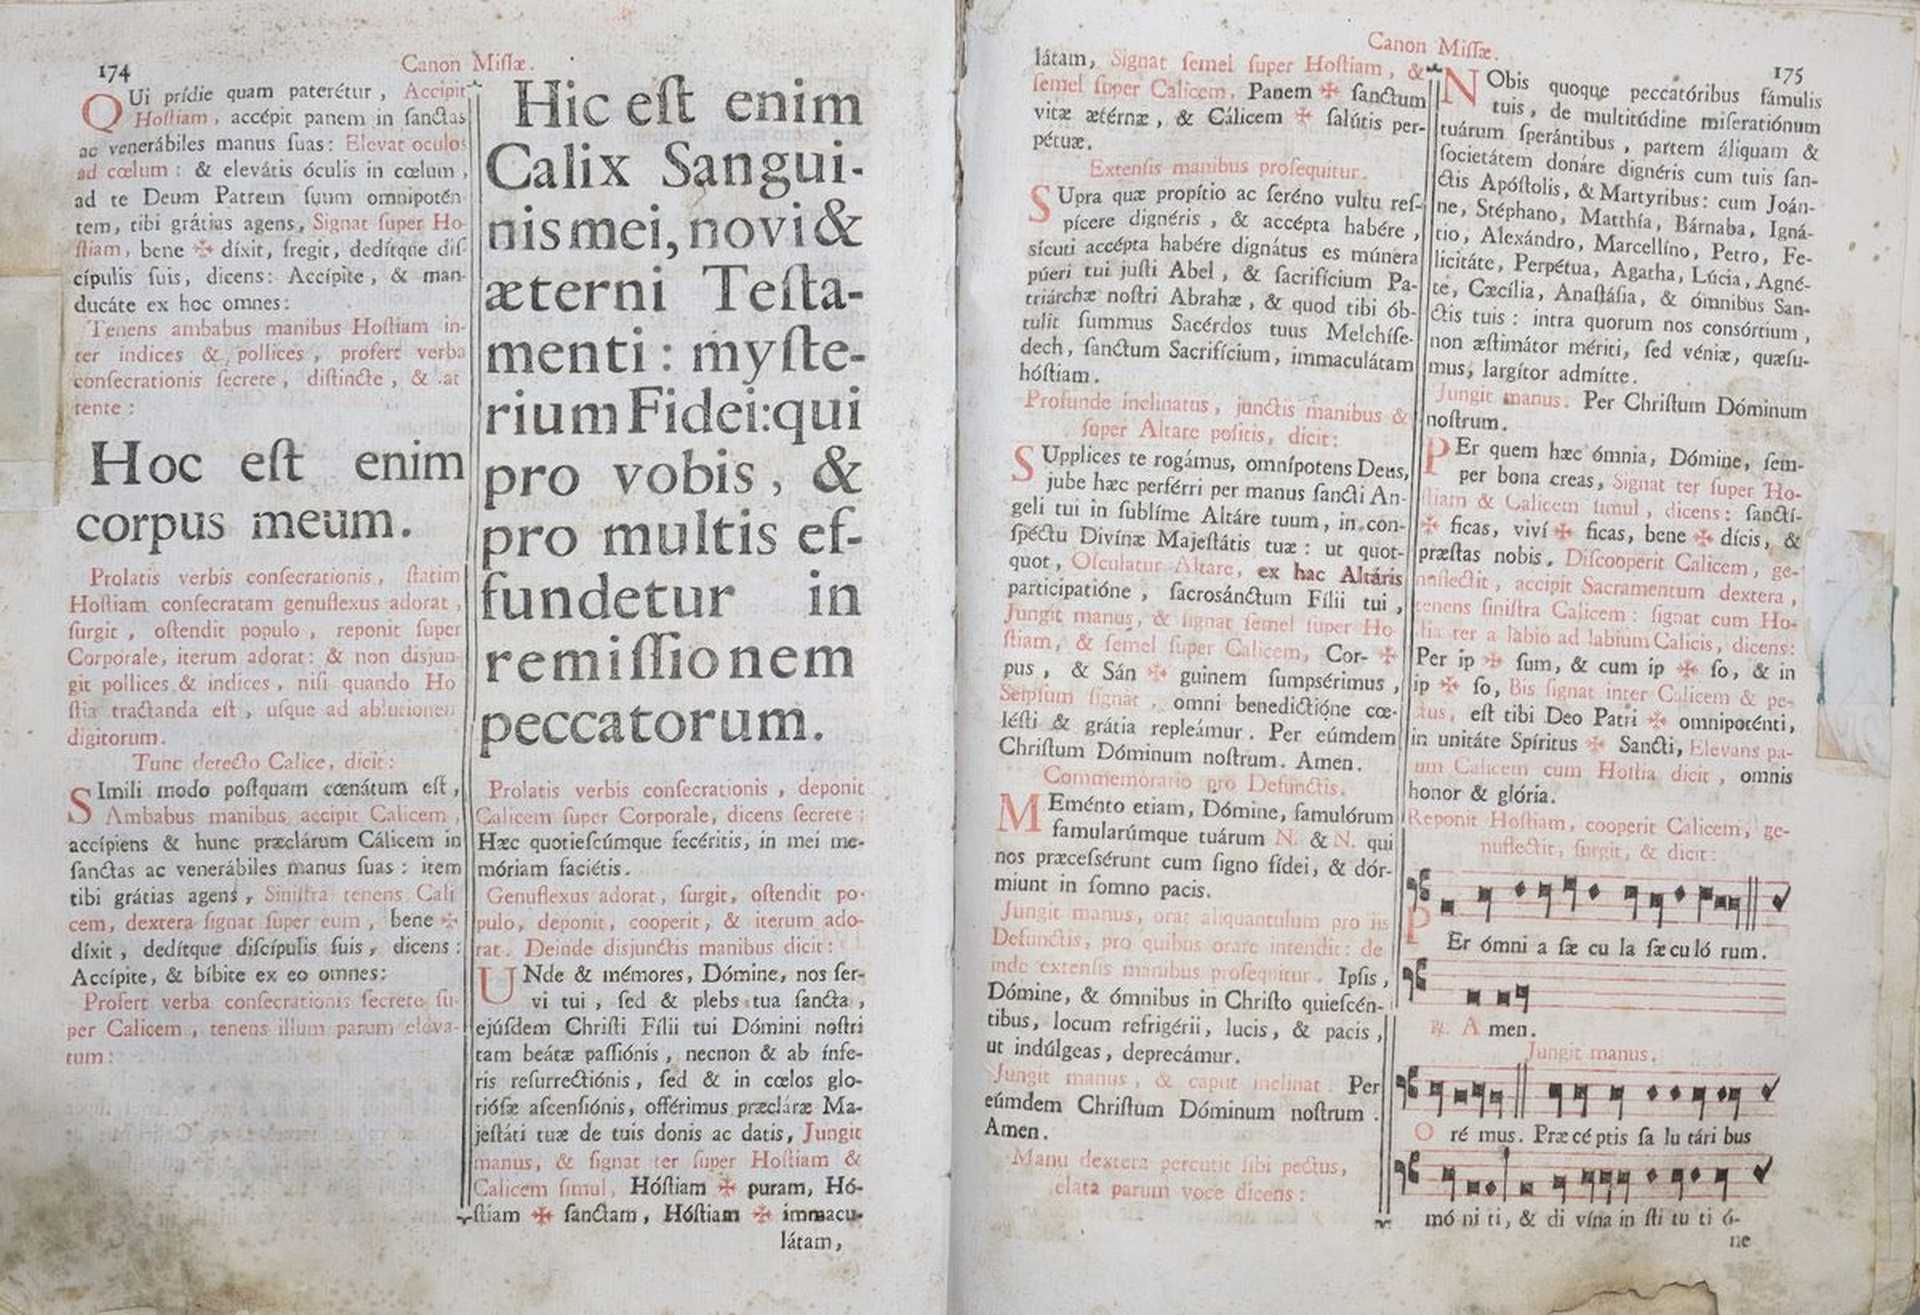 174
Canon Miſſæ.
QUi prídie quam paterétur, Accipit
Hoſtiam, accépit panem in ſanctas
ac venerábiles manus ſuas: Elevat oculos
ad cœlum: & elevátis óculis in cœlum,
ad te Deum Patrem ſuum omnipotén-
tem, tibi grátias agens, Signat ſuper Ho-
ſtiam, bene ✠ díxit, fregit, dedítque diſ-
cípulis ſuis, dicens: Accípite, & man-
ducáte ex hoc omnes:
Tenens ambabus manibus Hoſtiam in-
ter indices & pollices, profert verba
conſecrationis ſecrete, diſtincte, & at
tente:
Hoc eſt enim
corpus meum.
Prolatis verbis conſecrationis, ſtatim
Hoſtiam conſecratam genuflexus adorat,
ſurgit, oſtendit populo, reponit ſuper
Corporale, iterum adorat: & non disjun-
git pollices & indices, niſi quando Ho
ſtia tractanda eſt, uſque ad ablutionem
digitorum.
Tunc detecto Calice, dicit:
SImili modo poſtquam cœnátum eſt,
Ambabus manibus accipit Calicem,
accípiens & hunc præclárum Cálicem in
ſanctas ac venerábiles manus ſuas: item
tibi grátias agens, Siniſtra tenens Cali
cem, dextera ſignat ſuper eum, bene ✠
díxit, dedítque diſcípulis ſuis, dicens:
Accípite, & bíbite ex eo omnes:
Profert verba conſecrationis ſecrete ſu-
per Calicem, tenens illum parum eleva-
tum:
Hic eſt enim
Calix Sangui-
nis mei, novi &
æterni Teſta-
menti: myſte-
rium Fidei: qui
pro vobis, &
pro multis ef-
fundetur in
remiſſionem
peccatorum.
Prolatis verbis conſecrationis, deponit
Calicem ſuper Corporale, dicens ſecrete:
Hæc quotieſcúmque fecéritis, in mei me-
móriam faciétis.
Genuflexus adorat, ſurgit, oſtendit po-
pulo, deponit, cooperit, & iterum ado-
rat. Deinde disjunctis manibus dicit:
UNde & mémores, Dómine, nos ſer-
vi tui, ſed & plebs tua ſancta,
ejúſdem Chriſti Fílii tui Dómini noſtri
tam beátæ paſſiónis, necnon & ab ínfe-
ris reſurrectiónis, ſed & in cœlos glo-
rióſæ aſcenſiónis, offérimus præcláræ Ma-
jeſtáti tuæ de tuis donis ac datis, Jungit
manus, & ſignat ter ſuper Hoſtiam &
Calicem ſimul, Hóſtiam ✠ puram, Hó-
ſtiam ✠ ſanctam, Hóſtiam ✠ immacu-
látam,
Canon Miſſæ.
175
látam, Signat ſemel ſuper Hoſtiam, &
ſemel ſuper Calicem, Panem ✠ ſanctum
vitæ ætérnæ, & Cálicem ✠ ſalútis per-
pétuæ.
Extenſis manibus proſequitur.
SUpra quæ propítio ac ſeréno vultu reſ-
pícere dignéris, & accépta habére,
sícuti accépta habére dignátus es múnera
púeri tui juſti Abel, & ſacrifícium Pa-
triárchæ noſtri Abrahæ, & quod tibi ób-
tulit ſummus Sacérdos tuus Melchíſe-
dech, ſanctum Sacrifícium, immaculátam
hóſtiam.
Profunde inclinatus, junctis manibus &
ſuper Altare poſitis, dicit:
SUpplices te rogámus, omnípotens Deus,
jube hæc perférri per manus ſancti An-
geli tui in ſublíme Altáre tuum, in con-
ſpéctu Divínæ Majeſtátis tuæ: ut quot-
quot, Oſculatur Altare, ex hac Altáris
participatióne, ſacroſánctum Fílii tui,
Jungit manus, & ſignat ſemel ſuper Ho
ſtiam, & ſemel ſuper Calicem, Cor- ✠
pus, & Sán ✠ guinem ſumpsérimus,
Seipſum ſignat, omni benedictióne cœ-
léſti & grátia repleámur. Per eúmdem
Chriſtum Dóminum noſtrum. Amen.
Commemoratio pro Defunctis.
MEménto etiam, Dómine, famulórum
famularúmque tuárum N. & N. qui
nos præceſsérunt cum ſigno fídei, & dór-
miunt in ſomno pacis.
Jungit manus, orat aliquantulum pro iis
Defunctis, pro quibus orare intendit: de
inde extenſis manibus proſequitur. Ipſis,
Dómine, & ómnibus in Chriſto quieſcén-
tibus, locum refrigérii, lucis, & pacis,
ut indúlgeas, deprecámur.
Jungit manus, & caput inclinat. Per
eúmdem Chriſtum Dóminum noſtrum.
Amen.
Manu dextera percutit ſibi pectus,
elata parum voce dicens:
NObis quoque peccatóribus fámulis
tuis, de multitúdine miſeratiónum
tuárum ſperántibus, partem áliquam &
ſocietátem donáre dignéris cum tuis ſan-
ctis Apóſtolis, & Martyribus: cum Joán-
ne, Stéphano, Matthía, Bárnaba, Igná-
tio, Alexándro, Marcellíno, Petro, Fe-
licitáte, Perpétua, Agatha, Lúcia, Agné-
te, Cæcília, Anaſtáſia, & ómnibus San-
ctis tuis: intra quorum nos consórtium,
non æſtimátor mériti, ſed véniæ, quæſu-
mus, largítor admítte.
Jungit manus. Per Chriſtum Dóminum
noſtrum.
PEr quem hæc ómnia, Dómine, ſem-
per bona creas, Signat ter ſuper Ho-
ſtiam & Calicem ſimul, dicens: ſanctí-
✠ ficas, viví ✠ ficas, bene ✠ dícis, &
præſtas nobis. Diſcooperit Calicem, ge-
nuflectit, accipit Sacramentum dextera,
tenens ſiniſtra Calicem: ſignat cum Ho-
ſtia ter a labio ad labium Calicis, dicens:
Per ip ✠ ſum, & cum ip ✠ ſo, & in
ip ✠ ſo, Bis ſignat inter Calicem & pe-
ctus, eſt tibi Deo Patri ✠ omnipoténti,
in unitáte Spíritus ✠ Sancti, Elevans pa-
um Calicem cum Hoſtia dicit, omnis
honor & glória.
Reponit Hoſtiam, cooperit Calicem, ge-
nuflectit, ſurgit, & dicit:
PEr ómni a ſæ cu la ſæ cu ló rum.
℟. A men.
Jungit manus.
O ré mus. Præ cé ptis ſa lu tári bus
mó ni ti, & di vína in ſti tu ti ó-
ne